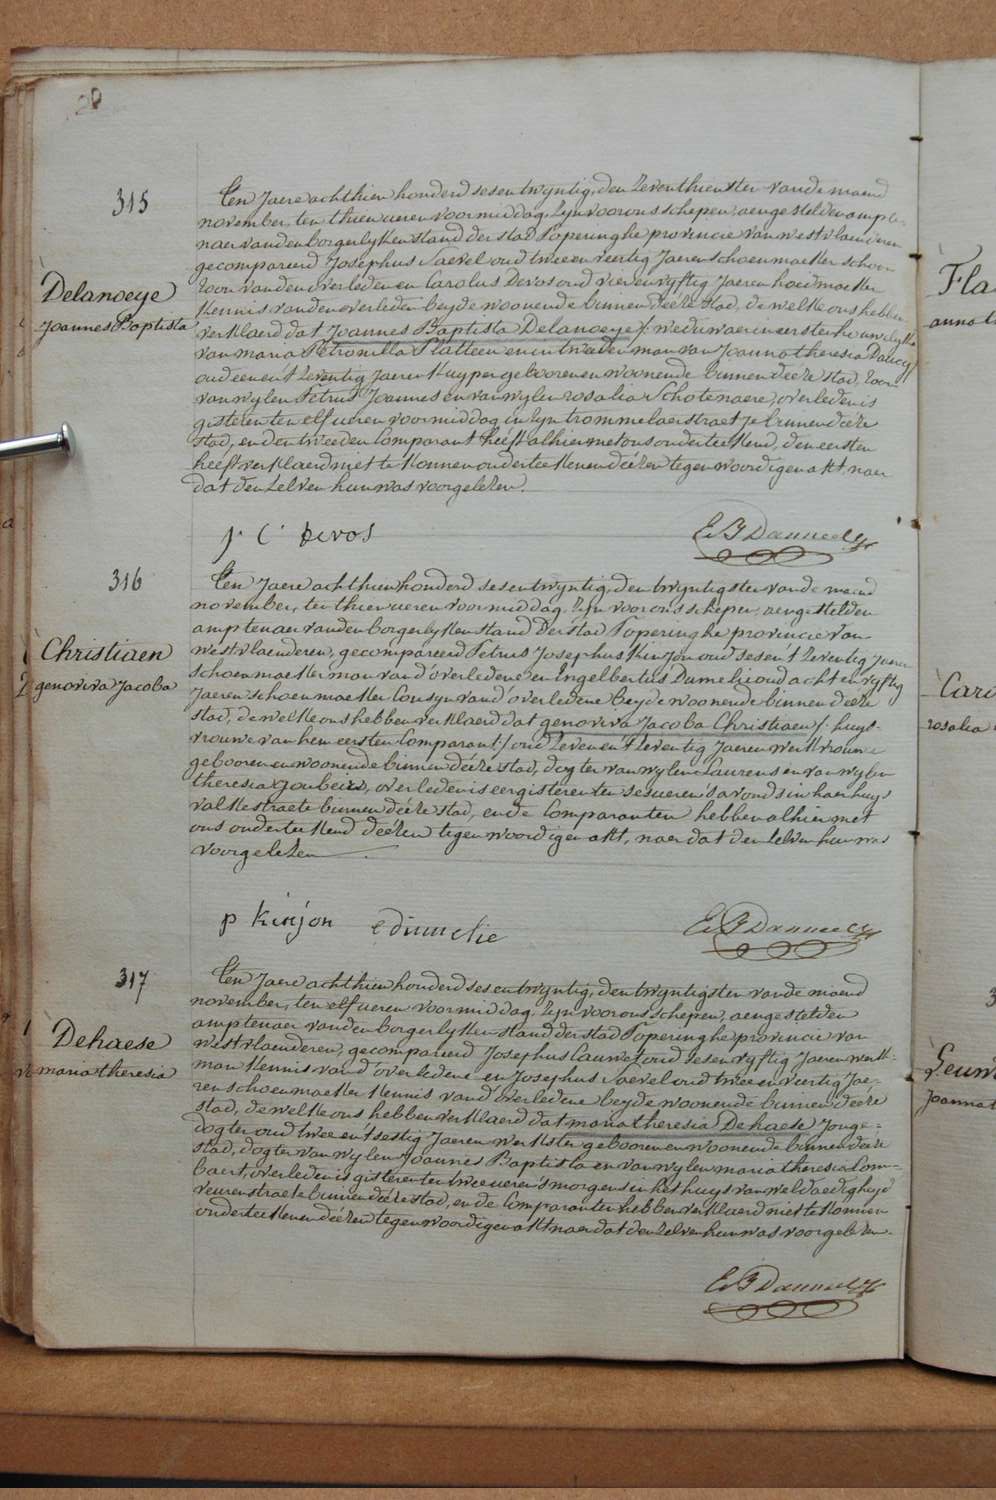 20
315
Delanoeye
Joannes Baptista
Ten Jaere achthien honderd sesentwyntig, den zeventhienster vande maend
november, ten thien ueren voormiddag, zyn voor ons schepen, aengestelden ampte-
naer van den borgerlyken stand der stad Poperinghe provincie van westvlaenderen
gecompareerd Josephus Naevel oud tweeenveertig Jaeren schoenmaeker schoon
zoon van den overleden en Carolus Devos oud vierenvyftig Jaeren hoedmaeker
kennis van den overleden beyde woonende binnen deéze stad, de welke ons hebben
verklaerd dat Joannes Baptista Delanoeye /: weduwaer in eerste houwelyk
van maria Petronilla Platteeu en in tweeden man van Joanna theresia
oud eenen t'zeventig Jaeren kuyper gebooren en woonende binnen deéze stad, zoon
van wylen Petrus Joannes en van wylen rosalia Schotenaere, overleden is
gisteren ten elf ueren voormiddag in zyn trommelaerstraetje binnen deéze
stad, en den tweeden Comparant heéft alhier met ons onderteekend, den eersten
heeft verklaerd niet te konnen onderteekenen deézen tegenwoordigen akt, naer
dat den zelven hun was voorgelezen.
p. C. Devos
316
Christiaen
genoviva Jacoba
Ten Jaere achthien honderd sesentwyntig, den twyntigster vande maend
november, ten thien ueren voormiddag zyn voor ons schepen, aengestelden
amptenaer van den borgerlyken stand der stad Poperinghe provincie van
westvlaenderen, gecompareerd Petrus Josephus Kinjon oud sesen t'zeventig Jaeren
schoenmaeker man van d'overledene en Engelbertus Dumelie oud acht en vyftig
Jaeren schoenmaeker Cousyn van d'overledene beyde woonende binnen deéze
stad, de welke ons hebben verklaerd dat genoviva Jacoba Christiaen /: huys-
vrouwe van hem eersten Comparant :/ oud zeven en t'zeventig Jaeren werkvrouwe
gebooren en woonende binnen deéze stad, dogter van wylen Laurens en van wylen
theresia , overleden is eergisteren ten ses ueren s'avonds in haer huys
valkestraete binnen deéze stad, ende Comparanten hebben alhier met
ons onderteekend deézen tegenwoordigen akt, naer dat den zelven hun was
voorgelezen
p kinjon e dumelie
317
Dehaese
maria theresia
Ten Jaere achthien honderd sesentwyntig, den twyntigster vande maend
november, ten elf ueren voormiddag, zyn voor ons schepen, aengestelden
amptenaer van den borgerlyken stand der stad Poperinghe provincie van
westvlaenderen, gecompareerd Josephus Lauwez oud sesenvyftig Jaeren werk-
man kennis van d'overledene en Josephus Naevel oud tweeenveertig Jae-
ren schoenmaeker kennis van d'overledene beyde woonende binnen deéze
stad, de welke ons hebben verklaerd dat maria theresia Dehaese Jonge-
dogter oud twee en t'sestig Jaeren werkster gebooren en woonende binnen deéze
stad, dogter van wylen Joannes Baptista en van wylen maria theresia Lom-
baert, overleden is gisteren ten twee ueren s'morgens in het huys van weldaedigheyd
veurenstraete binnen deéze stad, en de Comparanten hebben verklaerd niet te konnen
onderteekenen deézen tegenwoordigen akt naer dat den zelven hun was voorgelezen.
Fla
anna
Cari
rosalia
Joanna